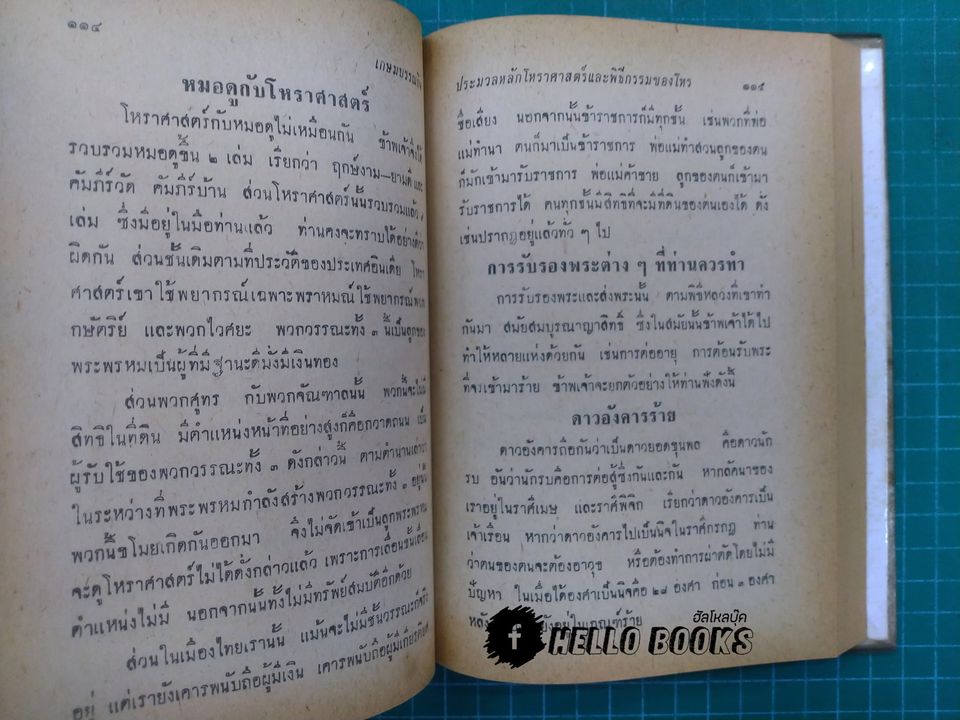 ๑๑๔
เกษมบรรณกิจ
หมอดูกับโหราศาสตร์
โหราศาสตร์กับหมอดูไม่เหมือนกัน ข้าพเจ้าจึงได้
รวบรวมหมอดูขึ้น ๒ เล่ม เรียกว่า ฤกษ์งาม—ยามดี และ
คัมภีร์วัด คัมภีร์บ้าน ส่วนโหราศาสตร์นั้นรวบรวมแล้ว
เล่ม ซึ่งมีอยู่ในมือท่านแล้ว ท่านคงจะทราบได้อย่างดีว่า
ผิดกัน ส่วนชั้นเดิมตามที่ประวัติของประเทศอินเดีย โหรา
ศาสตร์เขาใช้พยากรณ์เฉพาะพราหมณ์ใช้พยากรณ์พวก
กษัตริย์ และพวกไวศยะ พวกวรรณะทั้ง ๓ นี้เป็นลูกของ
พระพรหมเป็นผู้ที่มีฐานะดีมั่งมีเงินทอง
ส่วนพวกศูทร กับพวกจัณฑาลนั้น พวกนี้จะไม่มี
สิทธิในที่ดิน มีตำแหน่งหน้าที่อย่างสูงก็คือกวาดถนน เป็น
ผู้รับใช้ของพวกวรรณะทั้ง ๓ ดังกล่าวนี้ ตามตำนานเล่าว่า
ในระหว่างที่พระพรหมกำลังสร้างพวกวรรณะทั้ง ๓ อยู่นั้น
พวกนี้ขโมยเกิดกันออกมา จึงไม่จัดเข้าเป็นลูกพระพรหม
จะดูโหราศาสตร์ไม่ได้ดังกล่าวแล้ว เพราะการเลื่อนชั้นเลื่อน
ตำแหน่งไม่มี นอกจากนั้นทั้งไม่มีทรัพย์สมบัติอีกด้วย
ส่วนในเมืองไทยเรานั้น แม้นจะไม่มีชั้นวรรณะก็จริง
อยู่ แต่เรายังเคารพนับถือผู้มีเงิน เคารพนับถือผู้มีเกียรติยศ
ประมวลหลักโหราศาสตร์และพิธีกรรมของโหร
๑๑๕
ชื่อเสียง นอกจากนั้นข้าราชการก็มีทุกชั้น เช่นพวกที่พ่อ
แม่ทำนา ตนก็มาเป็นข้าราชการ พ่อแม่ทำสวนลูกของตน
ก็มักเข้ามารับราชการ พ่อแม่ค้าขาย ลูกของตนก็เข้ามา
รับราชการได้ คนทุกชั้นมีสิทธิที่จะมีที่ดินของตนเองได้ ดัง
เช่นปรากฏอยู่แล้วทั่ว ๆ ไป
การรับรองพระต่าง ๆ ที่ท่านควรทำ
การรับรองพระและส่งพระนั้น ตามพิธีหลวงที่เขาทำ
กันมา สมัยสมบูรณาญาสิทธิ์ ซึ่งในสมัยนั้นข้าพเจ้าได้ไป
ทำให้หลายแห่งด้วยกัน เช่นการต่ออายุ การต้อนรับพระ
ที่จรเข้ามาร้าย ข้าพเจ้าจะยกตัวอย่างให้ท่านฟังดังนี้
ดาวอังคารร้าย
ดาวอังคารถือกันว่าเป็นดาวยอดขุนพล คือดาวนัก
รบ อันว่านักรบคือการต่อสู้ซึ่งกันและกัน หากลัคนาของ
เราอยู่ในราศีเมษ และราศีพิจิก เรียกว่าดาวอังคารเป็น
เจ้าเรือน หากว่าดาวอังคารไปเป็นนิจในราศีกรกฎ ท่าน
ว่าตนของตนจะต้องอาวุธ หรือต้องทำการผ่าตัดโดยไม่มี
ปัญหา ในเมื่อได้องศาเป็นนิจคือ ๒๘ องศา ก่อน ๓ องศา
หลัง อยู่ในเกณฑ์ร้าย
ฮัลโหลบุ๊ค
f HELLO BOOKS